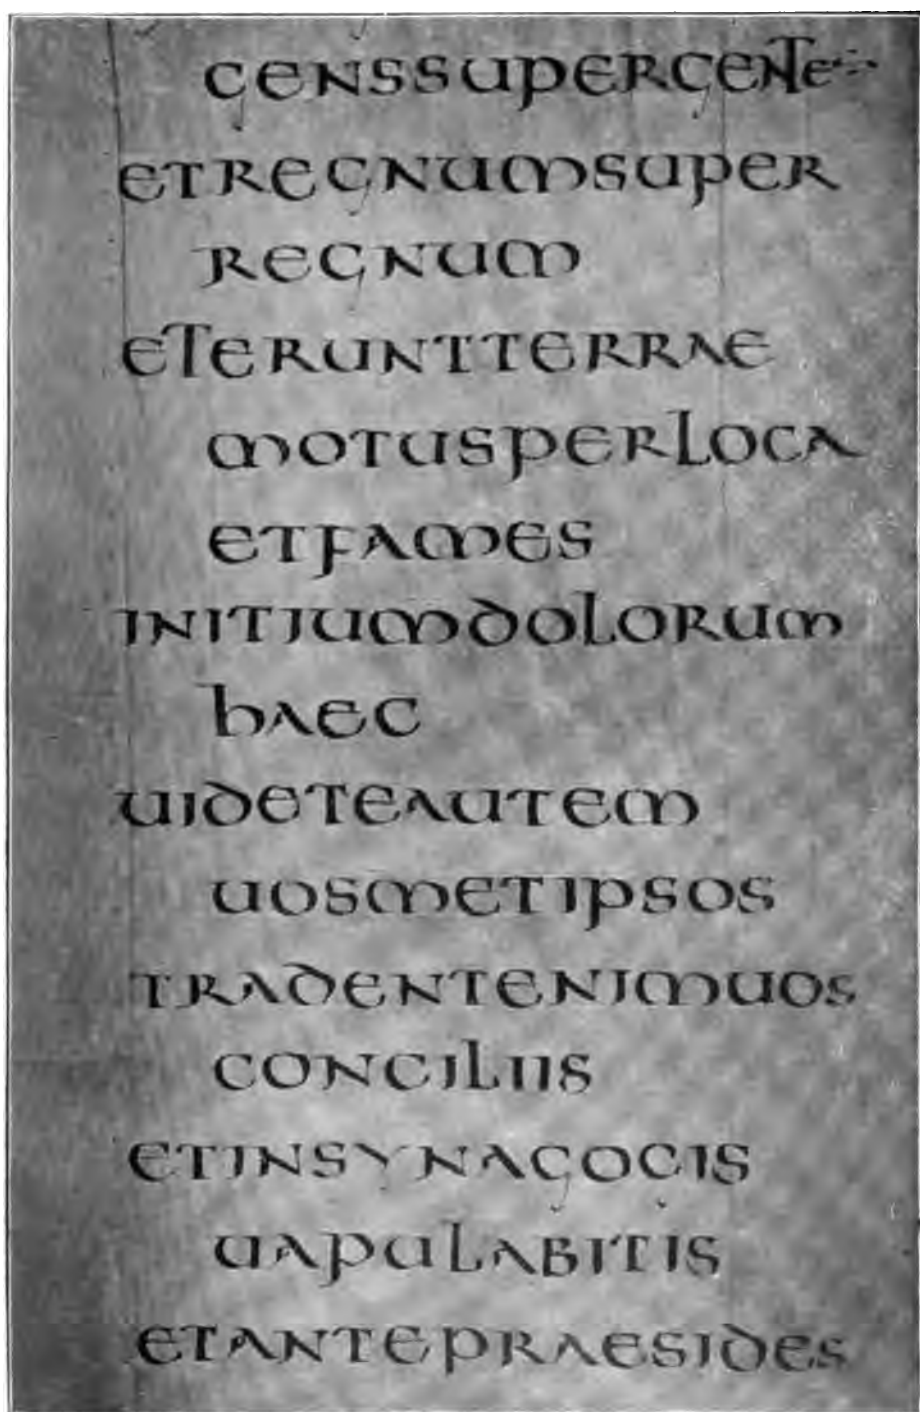 GENSSUPERGENTE
ETREGNUMSUPER
REGNUM
ETERUNTTERRAE
MOTUSPERLOCA
ETFAMES
INITIUMDOLORUM
HAEC
UIDETEAUTEM
UOSMETIPSOS
TRADENTENIMUOS
CONCILIIS
ETINSYNAGOGIS
UAPULABITIS
ETANTEPRAESIDES